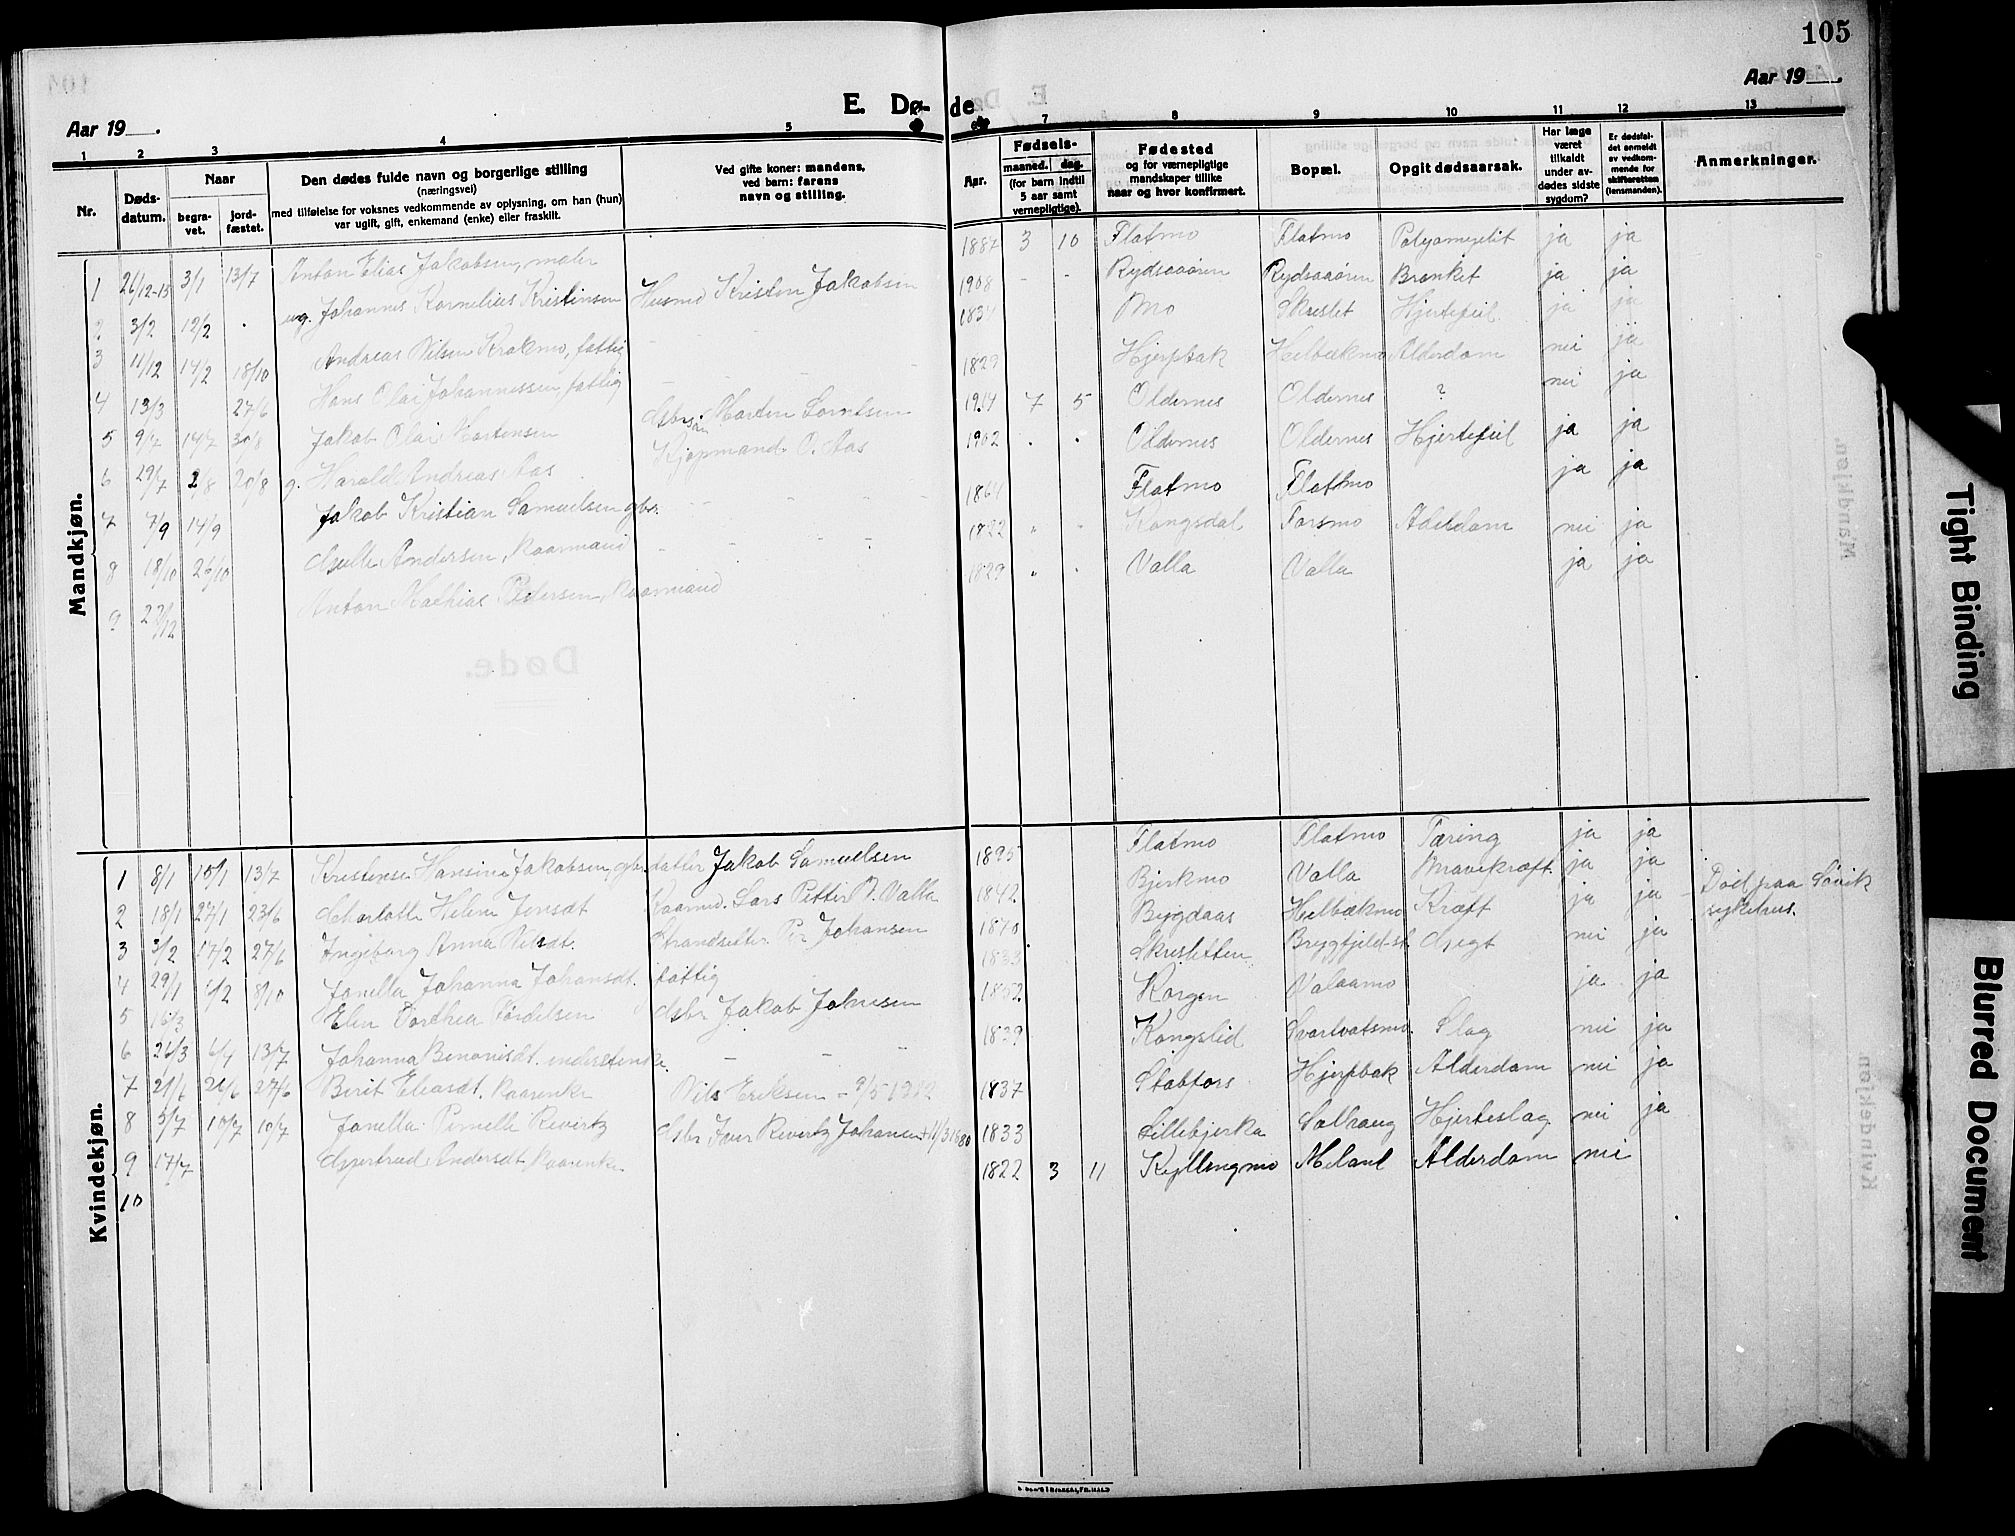 105
Aar 19
E. Dø- de
Aar 19
1 2 3 4 5 7 8 9 10 11 12 13
Nr.
Døds-
datum.
Naar
begra-
vet.
jord-
fæstet.
Den dødes fulde navn og borgerlige stilling
(næringsvei)
med tilføielse for voksnes vedkommende av oplysning, om han (hun)
var ugift, gift, enkemand (enke) eller fraskilt.
Ved gifte koner: mandens,
ved barn: farens
navn og stilling.
Fødsels-
Aar.
maaned.
dag.
(for barn indtil
5 aar samt
vernepligtige).
Fødested
og for værnepligtige
mandskaper tillike
naar og hvor konfirmert.
Bopæl.
Opgit dødsaarsak.
Har læge
været
tilkaldt
under av-
dødes sidste
sygdom?
Er dødsfal-
det anmeldt
av vedkom-
mende for
skifteretten
(lensmanden).
Anmerkninger.
Mandkjøn.
1 26/12-15 3/1 13/7 Anton Elias Jakobsen, maler Husmd Kristen Jakobsen 1887 3 10 Flatmo Flatmo ja ja
2 3/2 12/2 ug. Johannes Kornelius Kristinsen 1908 - - Rydsaaøren Rydsaaøren Brænket ja ja
3 11/12 14/2 18/10 Andreas Nilsen Krokmo, fattig 1834 Mo Skreslet Hjertefeil ja ja
4 13/3 27/6 Hans Olai Johannessen fattig 1829 Hjerpbak Helbækmo Alderdom nei ja
5 9/7 14/7 30/8 Jakob Olai Mortensen Morten Lorntsen 1914 7 5 Oldernes Oldernes ? nei ja
6 29/7 2/8 20/8 g. Harald Andreas Aas Kjøpmand O. Aas 1902 Oldernes Oldernes Hjertefeil ja ja
7 7/9 14/9 Jakob Kristian Samuelsen gbr. 1864 Flatmo Flatmo ja ja
8 18/10 26/10 Andersen, Kaarmand 1822 Kongsdal Forsmo Alderdom nei ja
9 27/12 Anton Mathias Pedersen, Kaarmand 1829 Valla Valla ja ja
Kvindekjøn.
1 8/1 15/1 13/7 Hansine Jakobsen, gbr. datter Jakob Samuelsen 1895 Flatmo Flatmo Tæring ja ja
2 18/1 27/1 23/6 Charlotte Helene Jensdt Kaarmd. Lars Petter N. Valla 1842 Bjerkmo Valla Mavekræft ja ja
3 3/2 17/2 27/6 Ingeborg Anna Nilsdt. Strandsitter Per Johansen 1870 Bygdaas Helbækmo Kræft ja ja Død paa Søvik
sykehus.
4 29/1 6/2 8/10 Jonella Johanna Johansdt. fattig 1833 Skresletten Brygfjeld Gigt nei ja
5 16/3 Elen Dorthea Tørdelsen Gbr Jakob Johnsen 1852 Korgen Valaamo ja ja
6 26/3 6/4 13/7 Johanna Benonisdt. inderstenke. 1839 Kongslid Svartvatsmo Slag nei ja
7 21/6 26/6 27/6 Berit Eliasdt. Kaarenke Nils Eriksen 1837 Stabfors Hjerpbak Alderdom nei ja
8 5/7 10/7 10/7 Jonella Pernelle Revirtz Gbr Iver Revertz Johansen 1833 Lillebjerka Solhaug Hjerteslag nei ja
9 17/7 Gjertrud Andersdt. Kaarenke 1822 3 11 Kyllingmo Alderdom nei
10
Tight Binding
Blurred Document